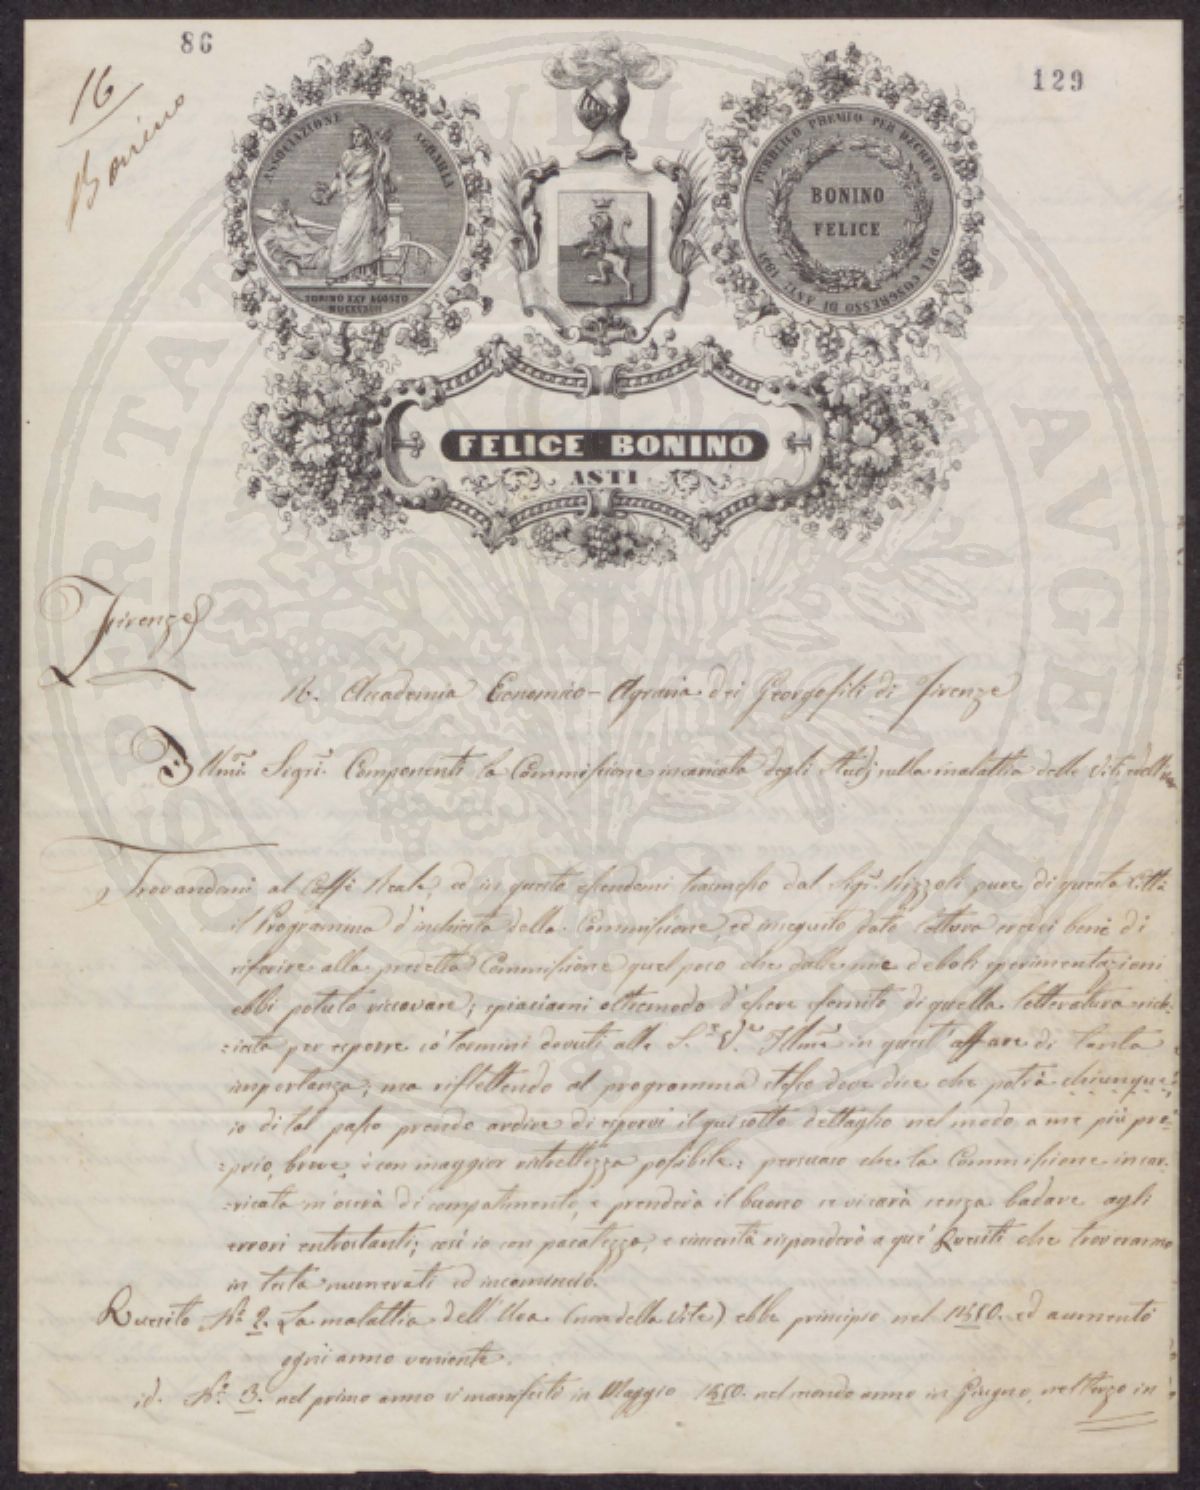 86
129
16
Bonino
ASSOCIAZIONE AGRARIA
TORINO XXV AGOSTO
MDCCCXLII
PUBBLICO PREMIO PER DECRETO
DEL CONGRESSO DI ASTI 1851
BONINO
FELICE
FELICE BONINO
ASTI
Firenze
R. Accademia Economico-Agraria dei Georgofili di Firenze
Illmi. Sigri. Componenti la Commissione incaricata degli studj sulla malattia delle viti e dell'Uva
Trovandomi al Caffè Reale, ed in questo essendomi trasmesso dal Sigr. Rizzoli pure di questa Città
il Programma d'inchiesta della Commissione, ed inseguito dato lettura credei bene di
riferire alla predetta Commissione quel poco che dalle mie deboli sperimentazioni
ebbi potuto ricavare; spiaciami oltremodo d'essere sfornito di quella letteratura rich-
:iesta per esporre i termini dovuti alle S. V. Illme in quest'affare di tanta
importanza; ma riflettendo al programma stesso dove dice che potrà chiunque,
io di tal passo prendo ardire di esporvi il qui sotto dettaglio nel modo a me più pro-
:prio, breve, e con maggior ristrettezza possibile; persuaso che la Commissione incar-
:ricata m'userà di compatimento, e prenderà il buono se vi sarà senza badare agli
errori entrostanti; così io con pacatezza, e sincerità risponderò a que' Quesiti che troveranno
in testa numerati ed incomincio.
Quesito No. 2. La malattia dell'Uva (non della Vite) ebbe principio nel 1850. ed aumentò
ogni anno veniente.
id. No. 3. nel primo anno si manifestò in Maggio 1850. nel secondo anno in Giugno, nel terzo in